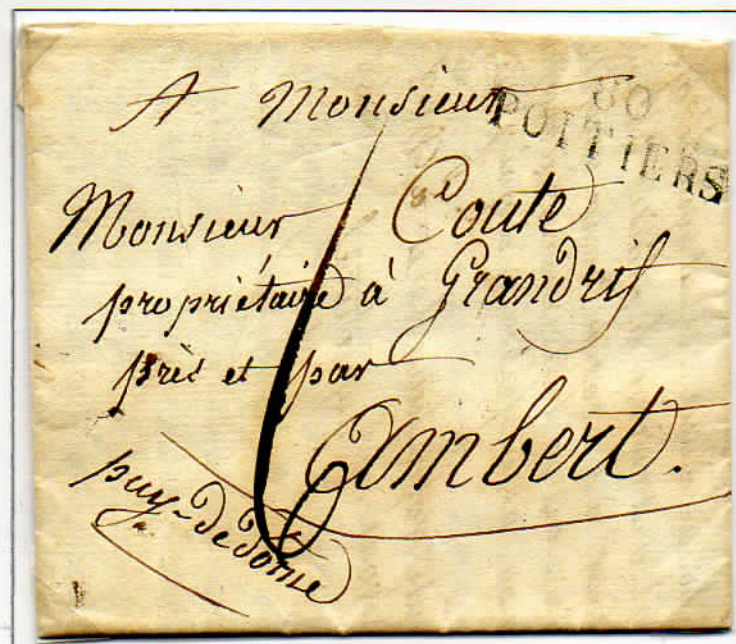 A Monsieur
80
POITIERS
Monsieur Coute
propriétaire à Grandrif
près et par
Ambert.
puy-de dome
6